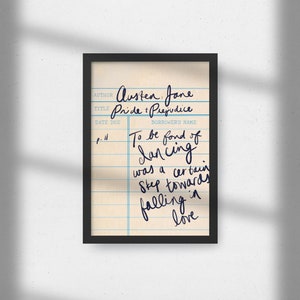 AUTHOR Austen, Jane
TITLE Pride & Prejudice
DATE DUE BORROWER'S NAME
p. 11 To be fond of
dancing
was a certain
step towards
falling in
love